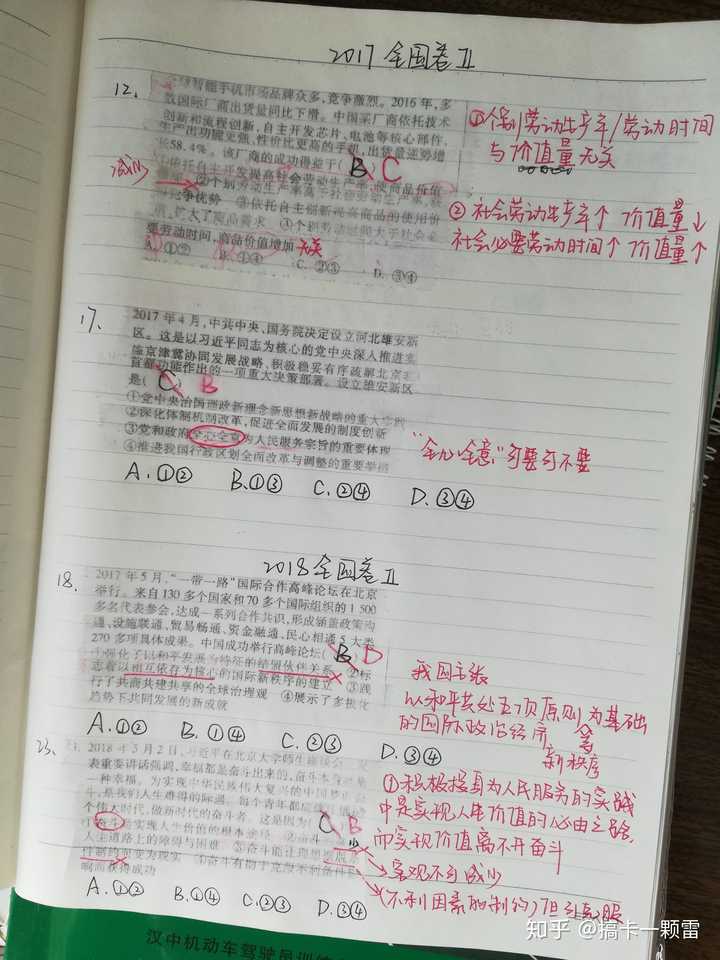 2017 全国卷II
12.
智能手机市场品牌众多,竞争激烈。2016年,多
数国际厂商出货量同比下滑。中国某厂商依托技术
创新和流程创新,自主开发芯片、电池等核心部件,
生产出功能更强、性价比更高的手机,出货量逆势增
长58.4%。该厂商的成功得益于( B C
①依托自主开发提高社会劳动生产率,使商品价值
减少
②个别劳动生产率高于社会劳动生产率,获
得竞争优势 ③依托自主创新提高商品的使用价
值,扩大了商品需求 ④个别劳动时间大于社会必
要劳动时间,商品价值增加 无关
A. ①② B. ①④ C. ②③ D. ③④
①个别劳动生产率/劳动时间
与价值量无关
②社会劳动生产率↑ 价值量↓
社会必要劳动时间↑ 价值量↑
17.
2017年4月,中共中央、国务院决定设立河北雄安新
区。这是以习近平同志为核心的党中央深入推进实
施京津冀协同发展战略、积极稳妥有序疏解北京非
首都功能作出的一项重大决策部署。设立雄安新区
是( C ) B
①党中央治国理政新理念新思想新战略的重大实践
②深化体制机制改革,促进全面发展的制度创新
③党和政府全心全意为人民服务宗旨的重要体现
④推进我国行政区划全面改革与调整的重要举措
"全心全意"可要可不要
A.①② B.①③ C.②④ D.③④
2018全国卷II
18.
2017年5月,“一带一路”国际合作高峰论坛在北京
举行。来自130多个国家和70多个国际组织的1 500
多名代表参会,达成一系列合作共识,形成涵盖政策沟
通、设施联通、贸易畅通、资金融通、民心相通5大类
270多项具体成果。中国成功举行高峰论坛( B D
①强化了以和平发展为特征的结盟伙伴关系 ②标
志着以相互依存为核心的国际新秩序的建立 ③践
行了共商共建共享的全球治理观 ④展示了多极化
趋势下共同发展的新成就
A.①② B.①④ C.②③ D.③④
我国主张
以和平共处五项原则为基础
的国际政治经济
新秩序
23.
2018年5月2日,习近平在北京大学师生座谈会上发
表重要讲话强调,幸福都是奋斗出来的,奋斗本身就是
一种幸福。为实现中华民族伟大复兴的中国梦而奋
斗,是我们人生难得的际遇。每个青年都应该珍惜这
个伟大时代,做新时代的奋斗者。这是因为( C B
①奋斗是实现人生价值的根本途径 ②奋斗
人生道路上的障碍与困难 ③奋斗能让理想摆脱客
件制约而变为现实 ④奋斗有助于克服不利条件的影
响而获得成功
A.①② B.①④ C.②③ D.③④
①积极投身为人民服务的实践
中是实现人生价值的必由之路,
而实现价值离不开奋斗
客观不可减少
(不利因素的制约)但可克服
汉中机动车驾驶员训练
知乎 @搞卡一颗雷